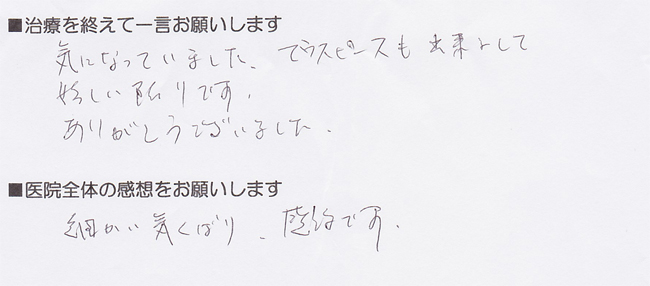 ■治療を終えて一言お願いします
気になっていました、でウスピースも出来まして
嬉しい限りです.
ありがとうございました.
■医院全体の感想をお願いします
細かい気くばり、感謝です.